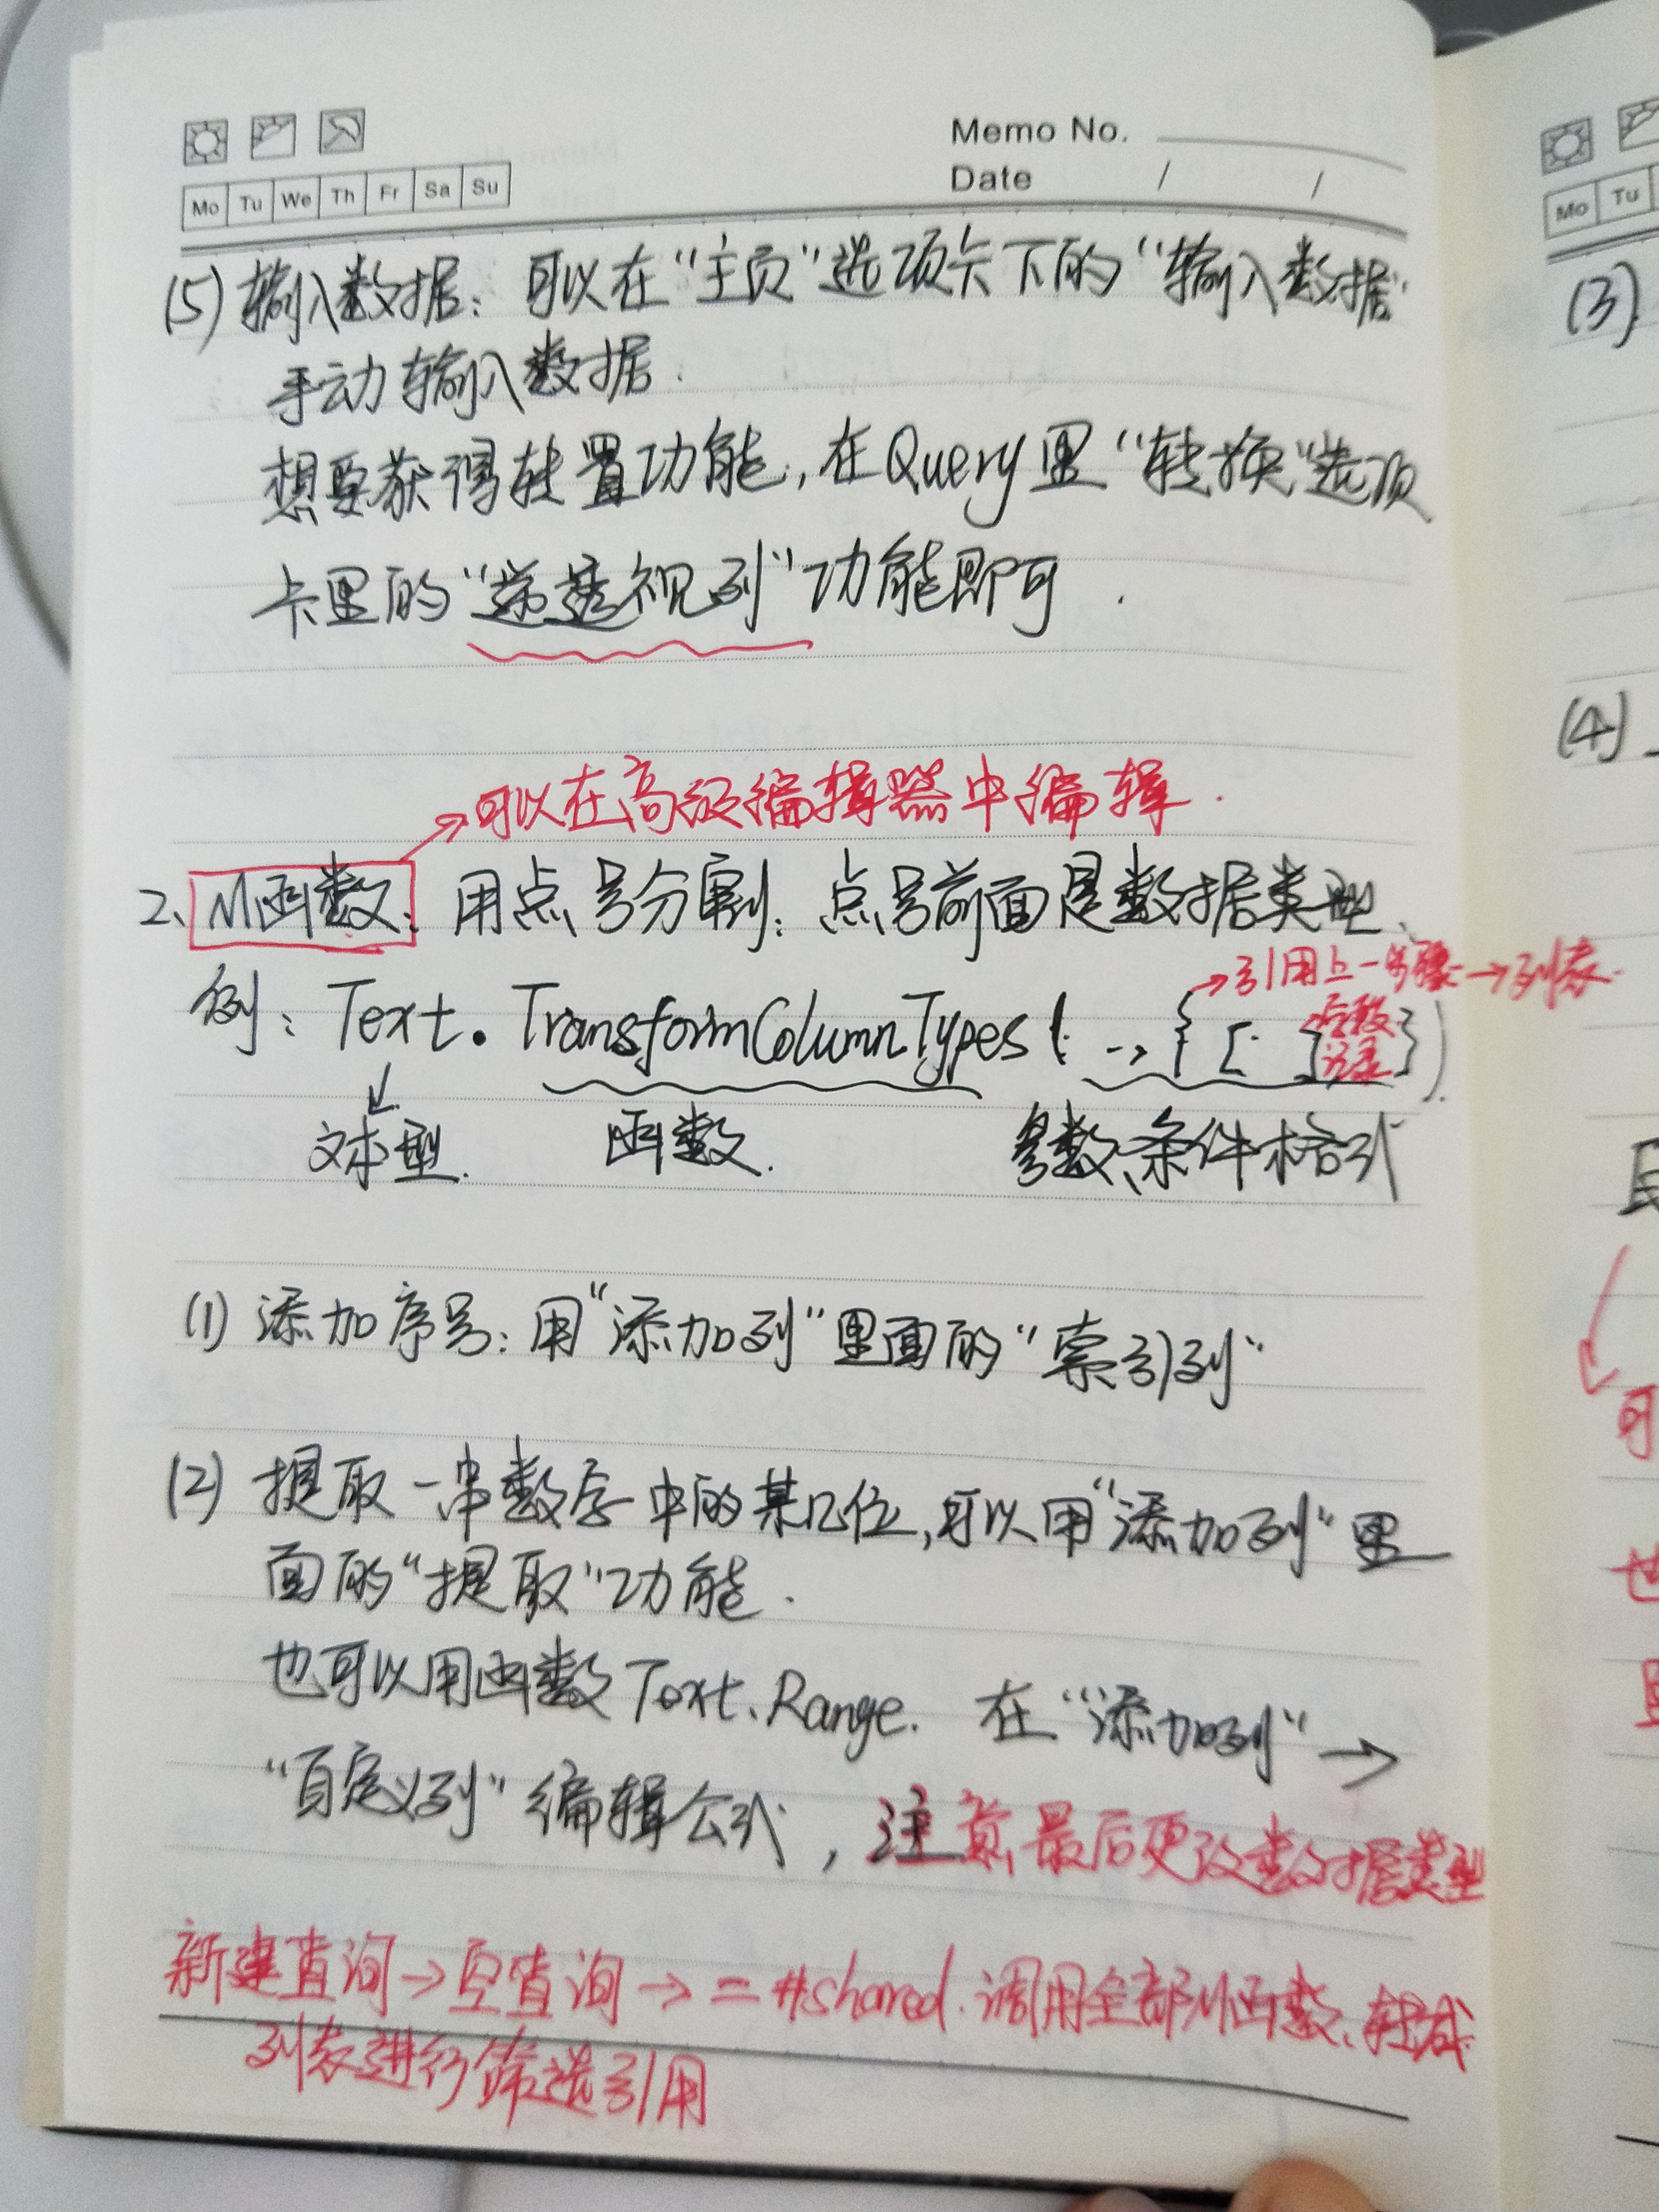 Memo No.
Date / /
Mo Tu We Th Fr Sa Su
(5) 输入数据：可以在“主页”选项卡下的“输入数据”
手动输入数据.
想要获得转置功能，在Query里“转换”选项
卡里的“逆透视列”功能即可.
→可以在高级编辑器中编辑.
2、M函数：用点号分割：点号前面是数据类型、
→引用上一步骤→列表
例：Text.TransformColumnTypes(…, {[ ]})
记录
文本型. 函数. 参数、条件格式
(1) 添加序号：用“添加列”里面的“索引列”
(2) 提取一串数字中的某几位，可以用“添加列”里
面的“提取”功能.
也可以用函数Text.Range. 在“添加列”→
“自定义列”编辑公式，注意最后更改数据类型
新建查询→空查询→=#shared.调用全部M函数、转成
列表进行筛选引用
Mo Tu
(3)
(4)
可
也